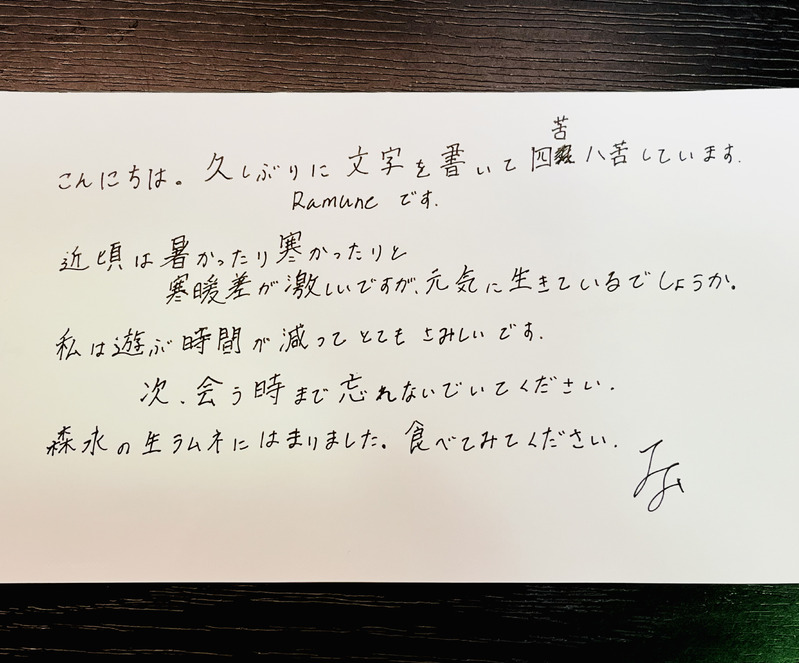 こんにちは。久しぶりに文字を書いて四苦八苦しています.
Ramune です.
近頃は暑かったり寒かったりと
寒暖差が激しいですが、元気に生きているでしょうか。
私は遊ぶ時間が減ってとてもさみしいです.
次、会う時まで忘れないでいてください.
森永の生ラムネにはまりました。食べてみてください.